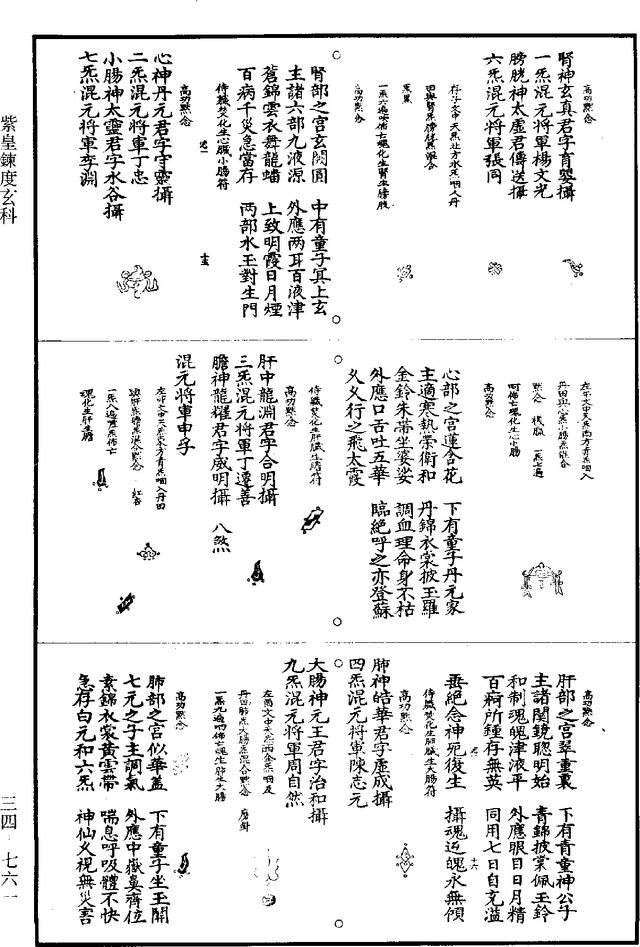 紫皇鍊度玄科
三四·七六一
高功默念
腎神玄真君字育嬰攝
一炁混元將軍楊文光
膀胱神太虛君傳送攝
六炁混元將軍張同
存子文中天炁北方水炁咽入丹
田與腎炁膀胱炁混合
炁黑
一炁六遍呵佛亡魂化生腎生膀胱
高功默念
腎部之宮玄闕圓　中有童子冥上玄
主諸六部九液源　外應兩耳百液津
蒼錦雲衣舞龍蟠　上致明霞日月煙
百病千災急當存　兩部水王對生門
侍職焚化生心臟小腸符
高功默念
心神丹元君字守靈攝
二炁混元將軍丁忠
小腸神太靈君字水谷攝
七炁混元將軍李淵
左午文中天炁南方青炁咽入
丹田與心炁小腸炁混合
默念　一炁七遍
呵佛亡魂化生心小腸
高功默念
心部之宮蓮含花　下有童子丹元家
主適寒熱榮衛和　丹錦衣裳披玉羅
金鈴朱帶坐婆娑　調血理命身不枯
外應口舌吐五華　臨絕呼之亦登蘇
久久行之飛太霞
侍職焚化生肝臟生膽符
高功默念
肝中龍淵君字合明攝
三炁混元將軍丁遷善
膽神龍耀君字威明攝　八炁
混元將軍申孚
左卯文中天炁東方青炁咽入丹田
與肝炁膽炁混合默念
一炁八遍噓炁佛亡
魂化生肝生膽
高功默念
肝部之宮翠重裏　下有青童神公子
主諸關鏡聰明始　青錦披裳佩玉鈴
和制魂魄津液平　外應眼目日月精
百痾所鍾存無英　同用七日自充溢
垂絕念神死復生　攝魂返魄永無傾
侍職焚化生肺臟生大腸符
高功默念
肺神皓華君字虛成攝
四炁混元將軍陳志元
大腸神元王君字治和攝
九炁混元將軍周自然
左酉文中天炁西金炁咽及
丹田肺炁大腸炁混合默念
一炁九遍呬佛亡魂生肺生大腸
高功默念
肺部之宮似華蓋　下有童子坐玉闕
七元之子主調氣　外應中嶽鼻齊位
素錦衣裳黃雲帶　喘息呼吸體不快
急存白元和六炁　神仙久視無災害